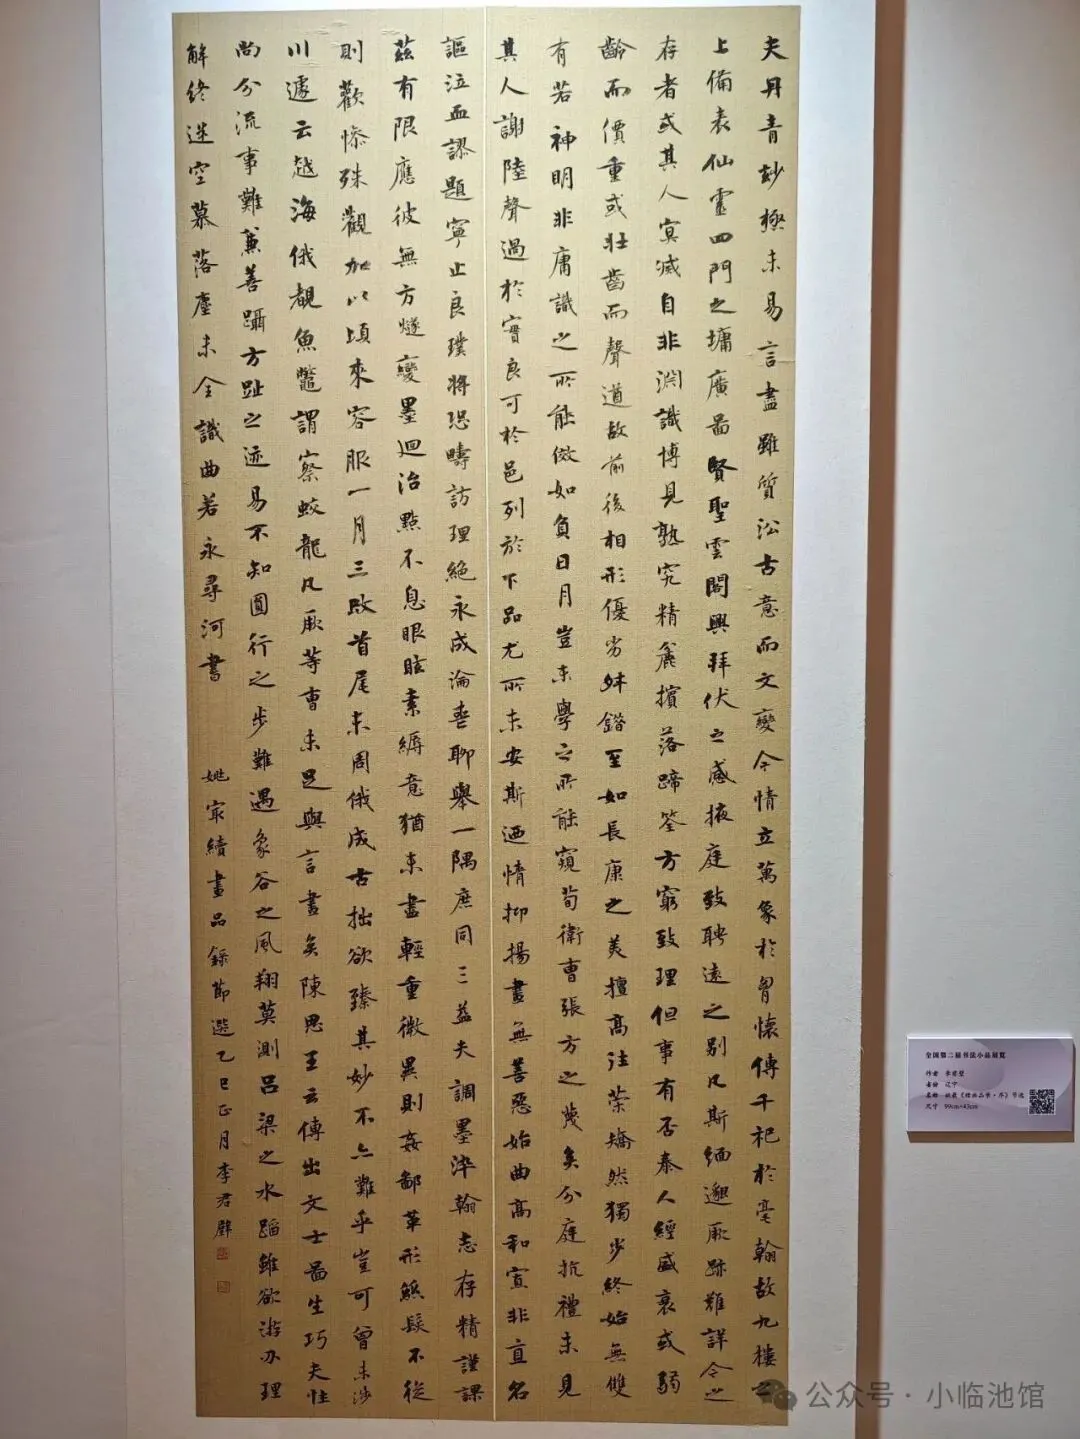 夫丹青妙極未易言盡雖質沿古意而文變今情立萬象於胷懷傳千祀於毫翰故九樓之
上備表仙靈四門之墉廣啚賢聖雲閣興拜伏之感掖庭致聘遠之別凡斯緬邈厥跡難詳今之
存者或其人冥滅自非淵識博見熟究精麁擯落蹄筌方窮致理但事有否泰人經盛衰或弱
齡而價重或壯齒而聲遒故前後相形優劣舛錯至如長康之美擅高往策矯然獨步終始無雙
有若神明非庸識之所能倣如負日月豈末學之所能窺荀衛曹張方之蔑矣分庭抗禮未見
其人謝陸聲過於實良可於邑列於下品尤所未安斯迺情抑揚畫無善惡始曲高和寡非直名
謳泣血謬題寧止良璞將恐疇訪理絕永成淪喪聊舉一隅庶同三益夫調墨染翰志存精謹課
茲有限應彼無方燧變墨迴治點不息眼眩素縟意猶未盡輕重微異則姦鄙革形絲髮不從
則歡慘殊觀加以頃來容服一月三改首尾未周俄成古拙欲臻其妙不亦難乎豈可曾未涉
川遽云越海俄覩魚鼈謂察蛟龍凡厥等曹未足與言畫矣陳思王云傳出文士啚生巧夫性
尚分流事難兼善躡方趾之迹易不知圓行之步難遇象谷之風翔莫測呂梁之水蹈雖欲游刃理
解終迷空慕落塵未全識曲若永尋河書
姚冣續畫品錄節選乙巳正月李君壁
全国第二届书法小品展览
作者 李君壁
省份 辽宁
名称 姚最《续画品录·序》节选
尺寸 99cm×43cm
公众号·小临池馆